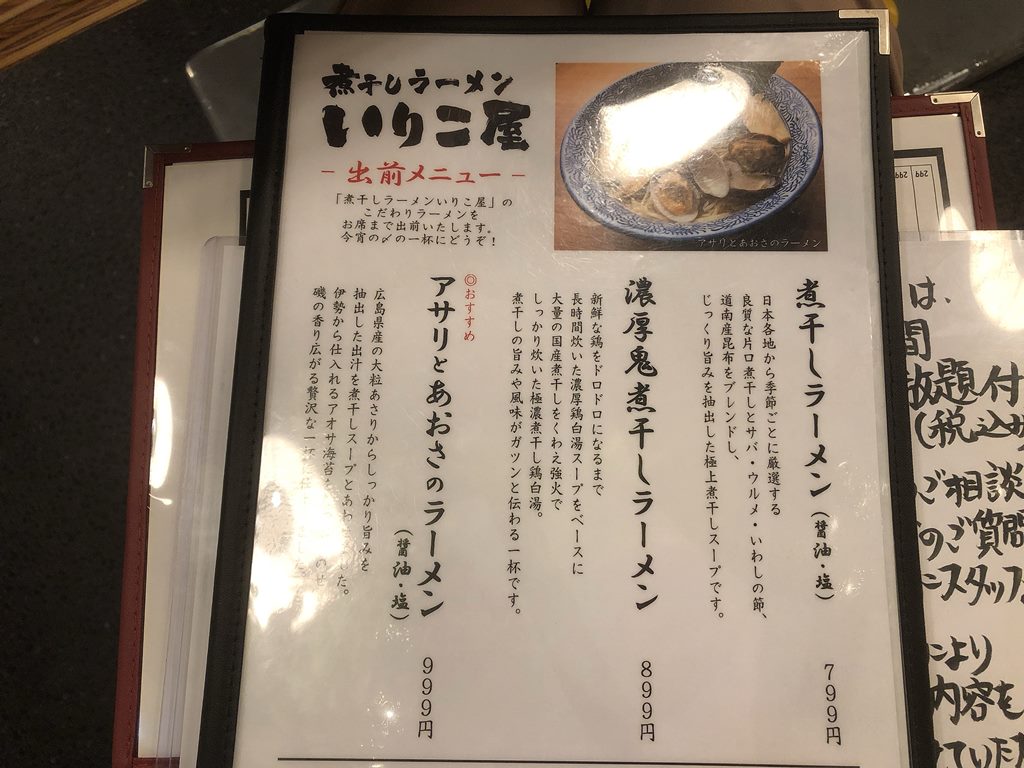 煮干しラーメン
いりこ屋
－出前メニュー－
「煮干しラーメンいりこ屋」の
こだわりラーメンを
お席まで出前いたします。
今宵の〆の一杯にどうぞ！
アサリとあおさのラーメン
煮干しラーメン（醤油・塩）
799円
日本各地から季節ごとに厳選する
良質な片口煮干しとサバ・ウルメ・いわしの節、
道南産昆布をブレンドし、
じっくり旨みを抽出した極上煮干しスープです。
濃厚鬼煮干しラーメン
899円
新鮮な鶏をドロドロになるまで
長時間炊いた濃厚鶏白湯スープをベースに
大量の国産煮干しをくわえ強火で
しっかり炊いた極濃煮干し鶏白湯。
煮干しの旨みや風味がガツンと伝わる一杯です。
◎おすすめ
アサリとあおさのラーメン
（醤油・塩）
999円
広島県産の大粒あさりからしっかり旨みを
抽出した出汁を煮干しスープとあわ
た。
伊勢から仕入れるアオサ海苔
のせ
磯の香り広がる贅沢な一杯に
た
299
299
は、
間
放題付
(税込
ご相談
のご質問
スタッフ
により
内容を
ていただ